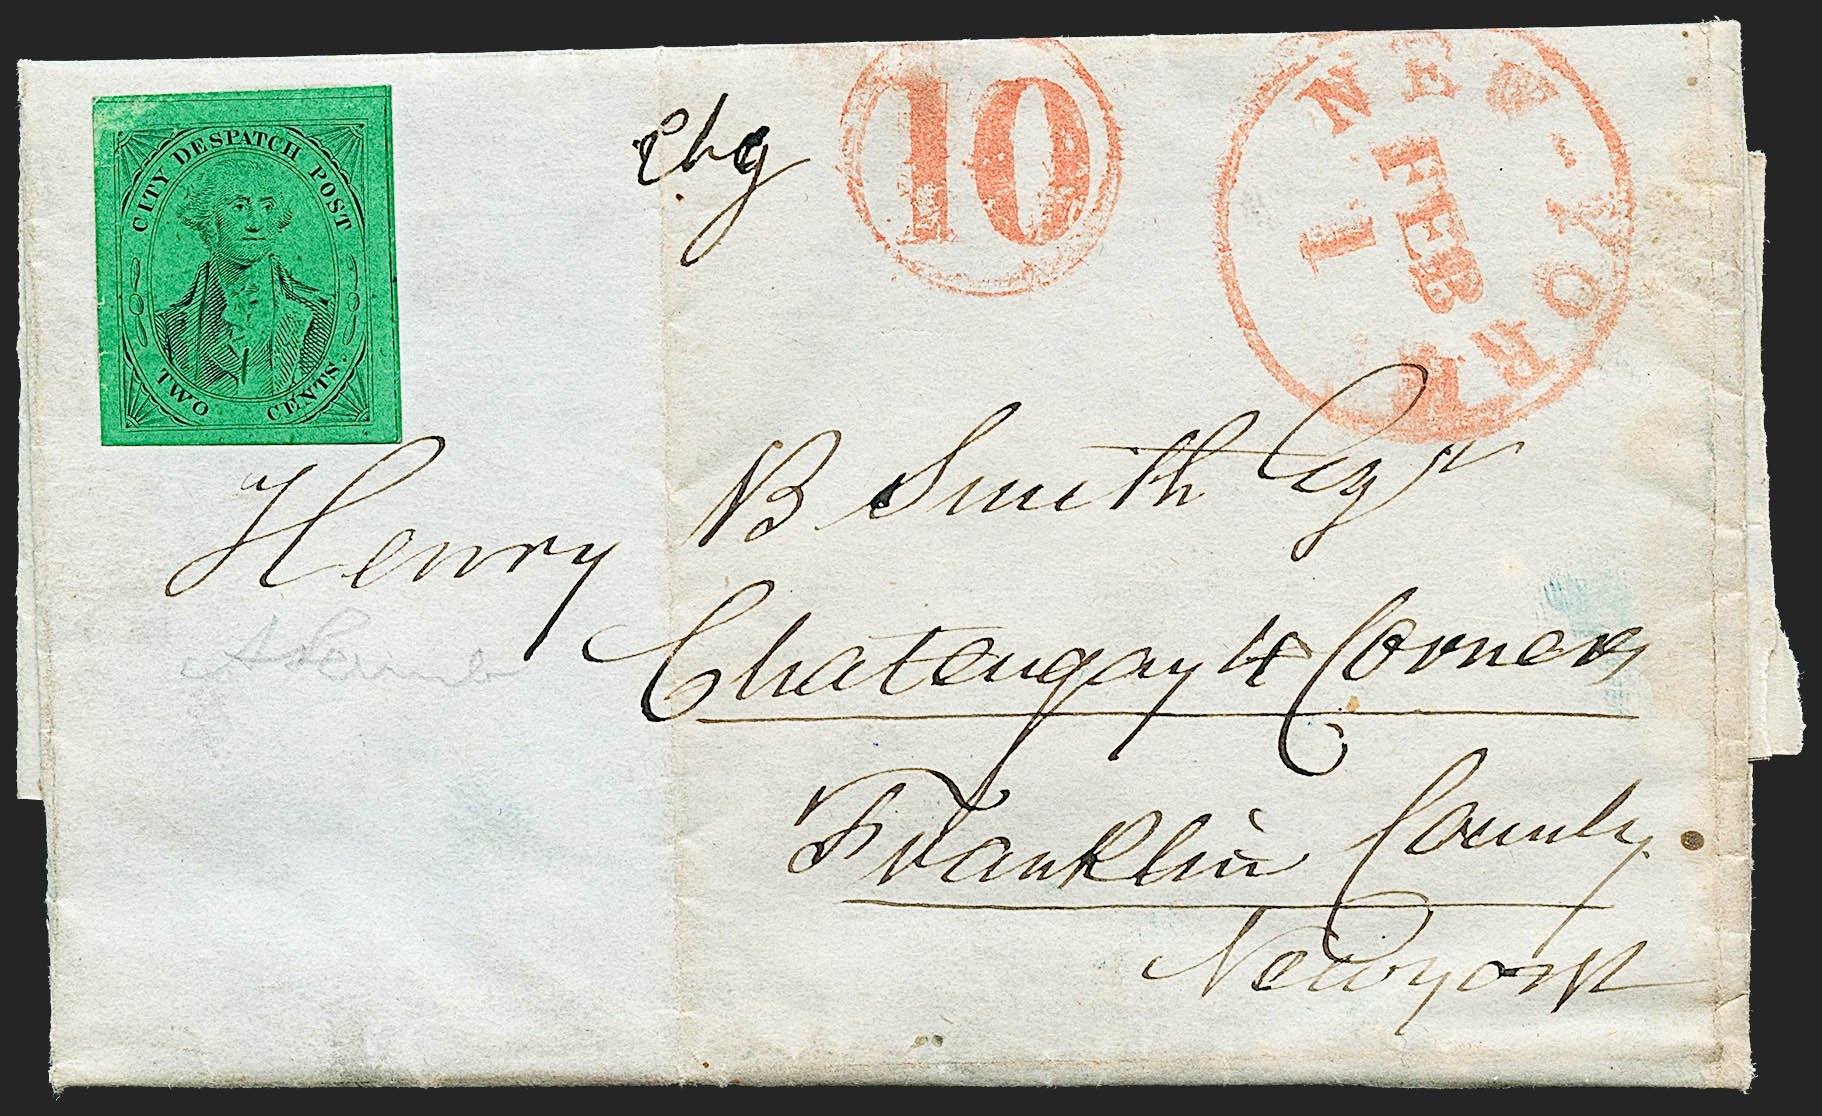 CITY DESPATCH POST
TWO CENTS.
Chg
10
NEW-YORK
FEB
1
Henry B Smith Esqr
Chateugay 4 Corners
Franklin County
New york